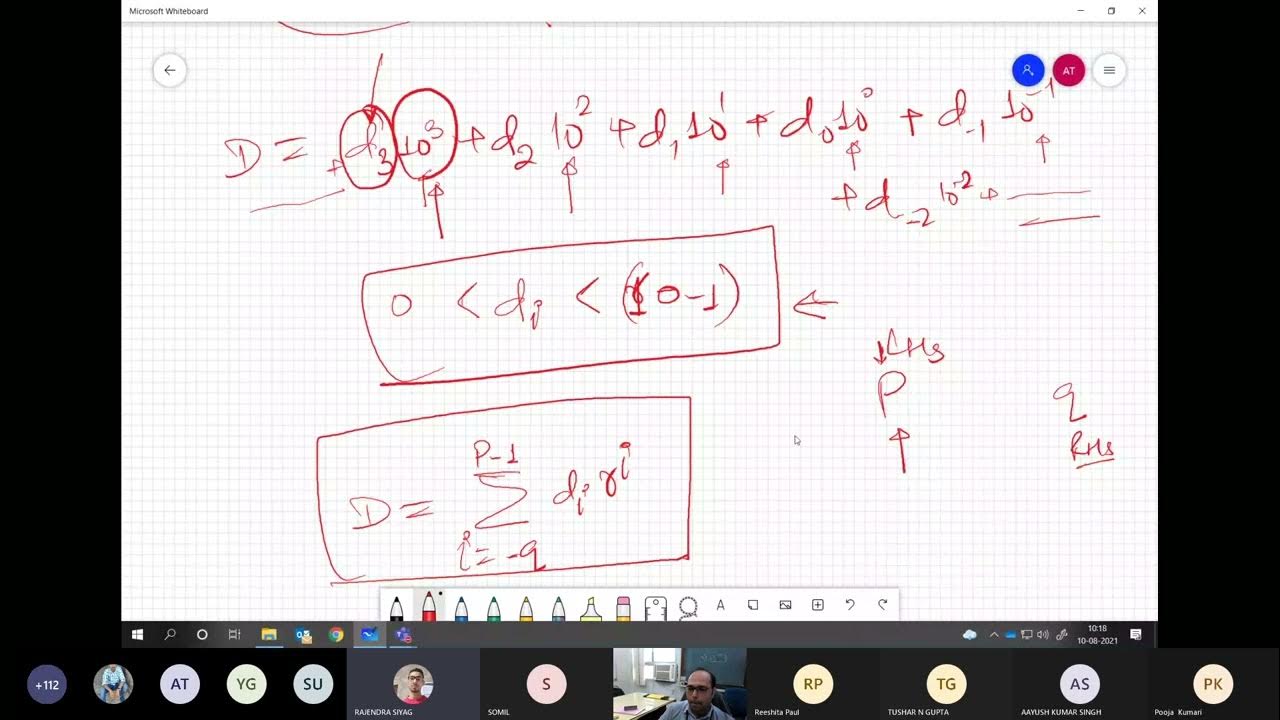 Microsoft Whiteboard
AT
D = + d₃ 10³ + d₂ 10² + d₁ 10¹ + d₀ 10⁰ + d₋₁ 10⁻¹
+ d₋₂ 10⁻² +
0 < dᵢ < (10-1)
LHS
P q
RHS
P-1
D = Σ dᵢ rⁱ
i = -q
A
10:18
10-08-2021
+112 AT YG SU S RP TG AS PK
RAJENDRA SIYAG SOMIL Reeshita Paul TUSHAR N GUPTA AAYUSH KUMAR SINGH Pooja Kumari